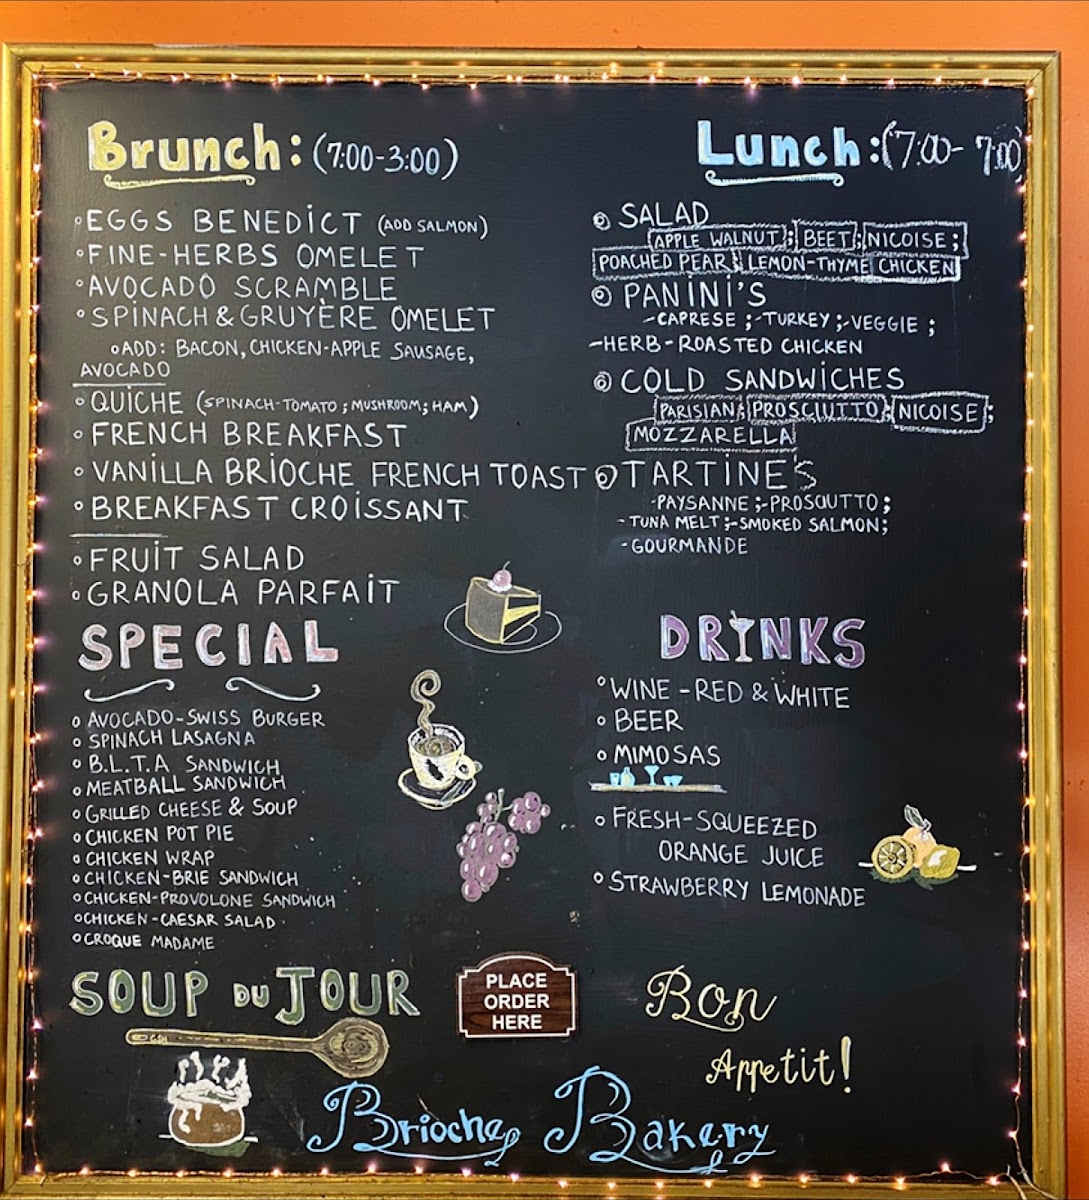 Brunch: (7:00-3:00)
◦EGGS BENEDICT (ADD SALMON)
◦FINE-HERBS OMELET
◦AVOCADO SCRAMBLE
◦SPINACH & GRUYÈRE OMELET
◦ADD: BACON, CHICKEN-APPLE SAUSAGE,
AVOCADO
◦QUICHE (SPINACH-TOMATO; MUSHROOM; HAM)
◦FRENCH BREAKFAST
◦VANILLA BRIOCHE FRENCH TOAST
◦BREAKFAST CROISSANT
◦FRUIT SALAD
◦GRANOLA PARFAIT
Lunch: (7:00- 7:00)
◦SALAD
APPLE WALNUT; BEET; NICOISE;
POACHED PEAR; LEMON-THYME CHICKEN
◦PANINI'S
-CAPRESE; -TURKEY; -VEGGIE;
-HERB-ROASTED CHICKEN
◦COLD SANDWICHES
PARISIAN; PROSCIUTTO; NICOISE;
MOZZARELLA
◦TARTINE'S
-PAYSANNE; -PROSCIUTTO;
-TUNA MELT; -SMOKED SALMON;
-GOURMANDE
SPECIAL
◦AVOCADO-SWISS BURGER
◦SPINACH LASAGNA
◦B.L.T.A SANDWICH
◦MEATBALL SANDWICH
◦GRILLED CHEESE & SOUP
◦CHICKEN POT PIE
◦CHICKEN WRAP
◦CHICKEN-BRIE SANDWICH
◦CHICKEN-PROVOLONE SANDWICH
◦CHICKEN-CAESAR SALAD
◦CROQUE MADAME
DRINKS
◦WINE-RED & WHITE
◦BEER
◦MIMOSAS
◦FRESH-SQUEEZED
ORANGE JUICE
◦STRAWBERRY LEMONADE
SOUP DU JOUR
PLACE
ORDER
HERE
Bon
Appetit!
Brioche Bakery